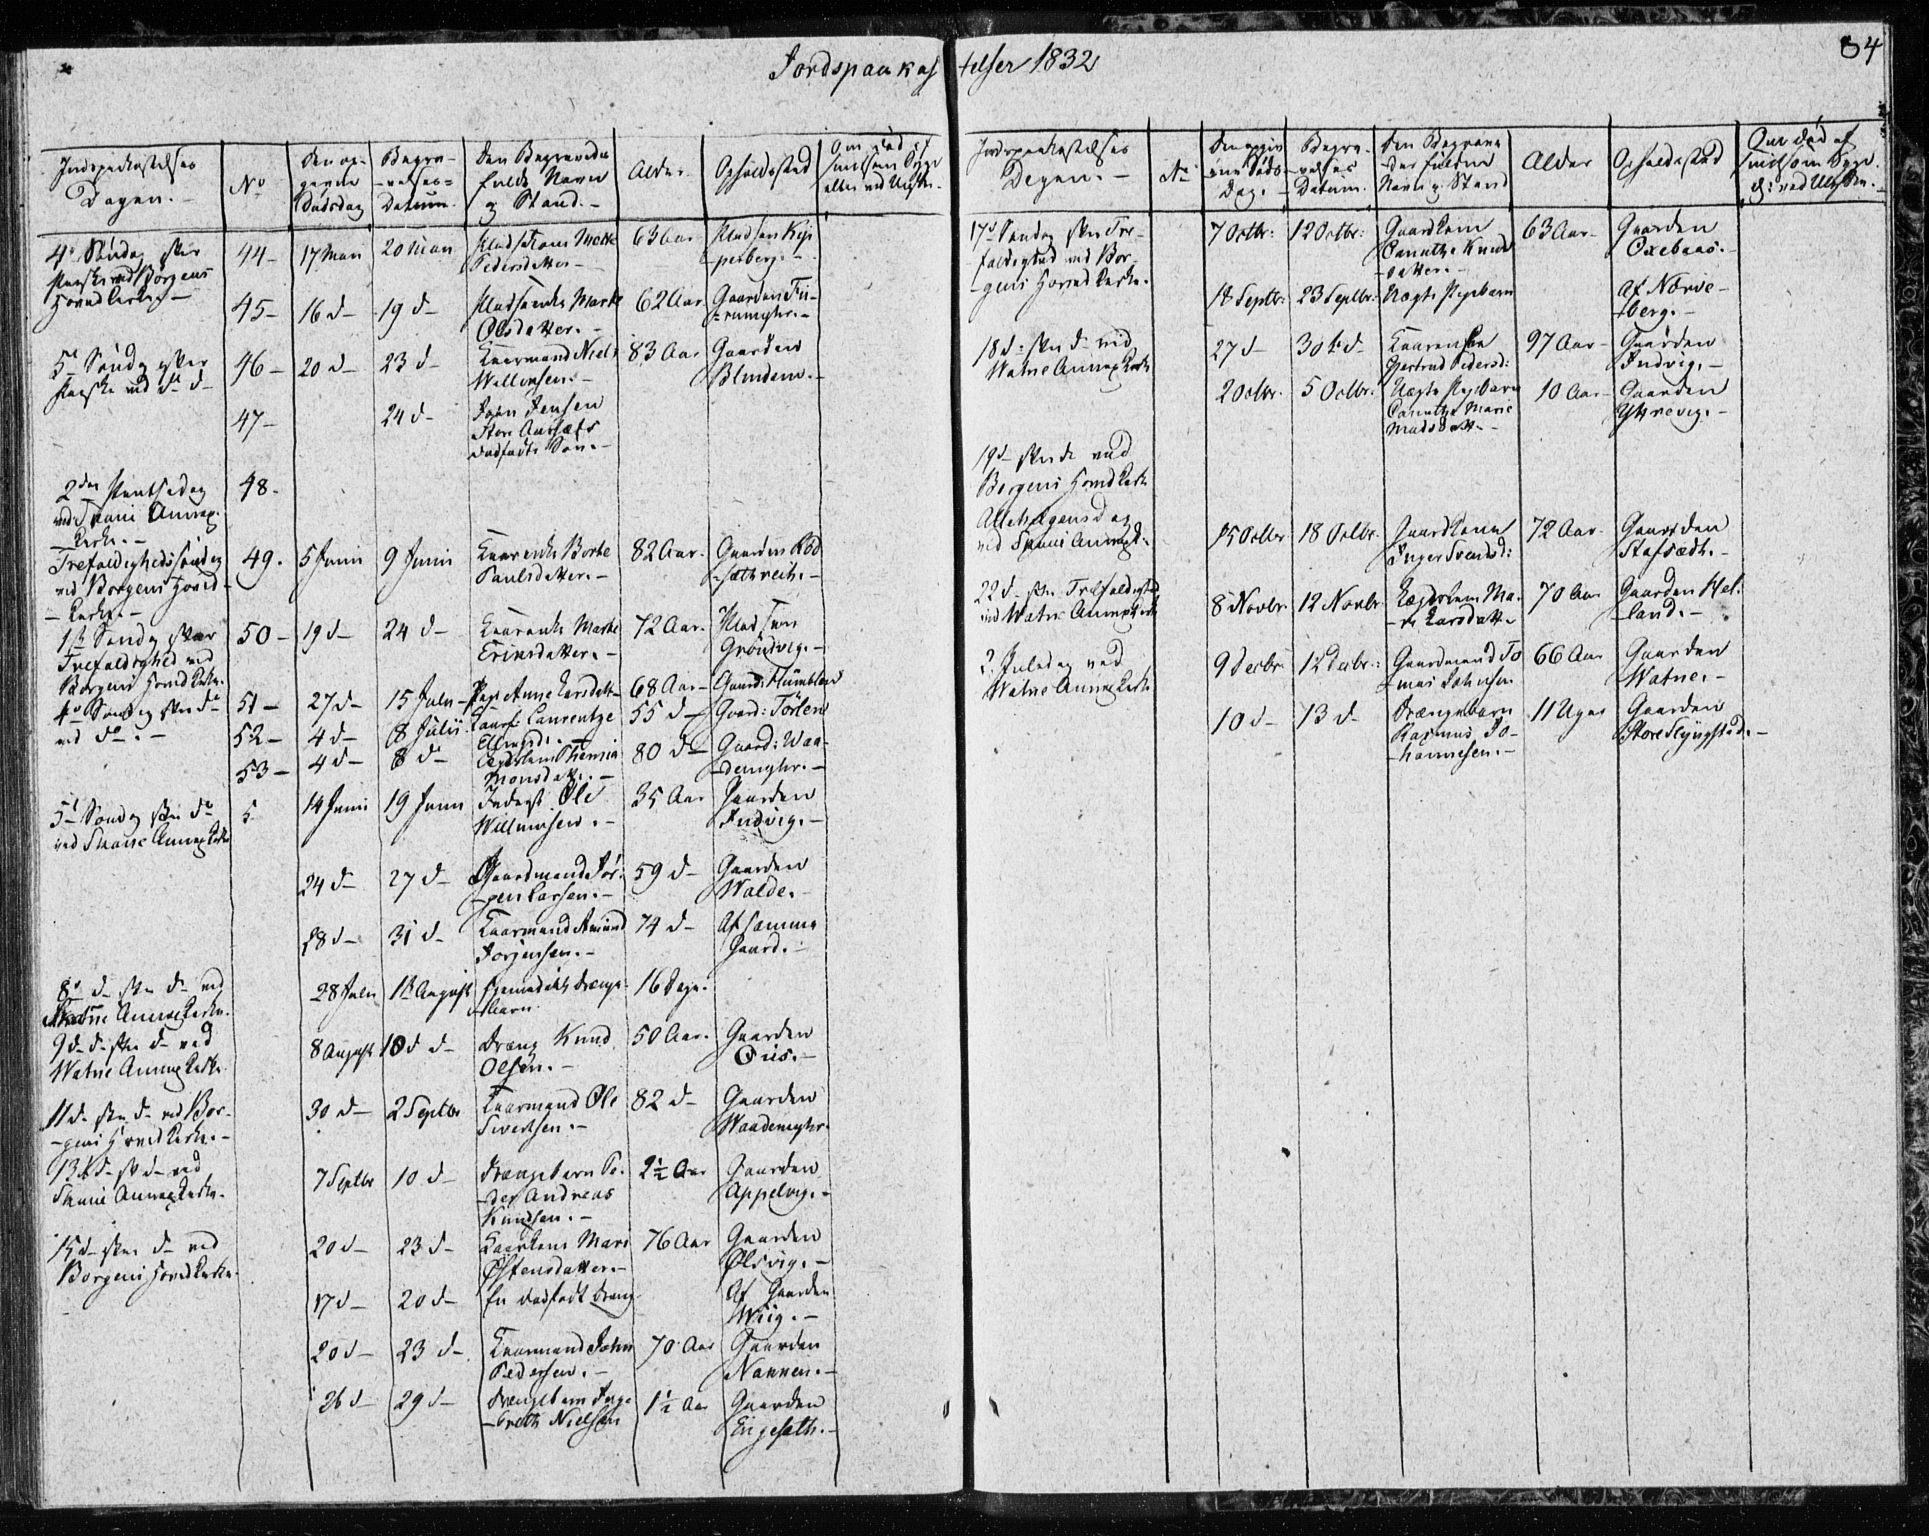 Jordspaakastelser 1832
34
Jordpaakastelses
Dagen.-
No
Den op-
givne
Dødsdag
Begra-
-velses=
Datum.
Den Begravedes
fulde Navn
og Stand.-
Alder
Opholdssted
Om død af
smitsom Syge
eller ved Ulykke.-
4de Søndag efter
Paaske ved Borgens
Hoved Kirke.-
44-
17 Mai
20 Mai
Pladsekone Marte
Pedersdatter.-
63 Aar
Pladsen Kip-
perberg.-
45-
16 d-
19 d-
Olsdatter.-
62 Aar
Gaarden
5te Søndag efter
Paaske ved do do
46-
20 d-
23 d-
Kaarmand Niels
Willumsen.-
83 Aar
Gaarden
Blindem.-
47-
24 d-
Jørn Jensen
Store
dødfødte Søn.-
2den Pintsedag
ved Skoue Annex
Kirke.-
48-
Trefoldighedssøndag
ved Borgens Hoved-
-Kirke.-
49.
5 Junii
9 Junii
Kaarenke Borte
Paulsdatter.-
82 Aar.-
Gaarden Rød-
-sæthreit.-
1ste Søndag efter
Trefoldighed ved
Borgens Hoved Kirke.
50-
19 d-
24 d-
Kaarenke Marte
Eriksdatter.-
72 Aar.-
Pladsen
Grøndvig.-
4de Søndag efter do
ved do.-
51-
27 d-
15 Julii-
Anne Larsdatt-
68 Aar-
Gaard: Humblen
52-
4 d-
8 Julii
Laurentze
55 d-
Gaard: Tørlen
53-
4 d-
8 d-
Monsdatt.-
80 d-
Gaard: Waa-
-demyhr.-
5te Søndag efter do
ved Skoue Annex Kirke
5
14 Junii
19 Junii
Inderst Ole
Willumsen.-
35 Aar
Gaarden
Indvig.-
24 d-
27 d-
Gaardmand Jør-
-gen Larsen.-
59 d-
Gaarden
Walde.-
28 d-
31 d-
Kaarmand Amund
Jørgensen.-
74 d-
Af samme
Gaard.-
8de d- efter d- ved
Annex Kirke.
28 Julii
1ste August
hiemedøbt Drenge-
-barn.
16 Dage.
9de d- efter d- ved
Watne Annex Kirke
8 August
10 d d-
Dreng Knud
Olsen.-
50 Aar.-
Gaarden
11 d- efter d- ved Bor-
-gens Hoved Kirke.-
30 d-
2 Septbr
Kaarmand Ole
Sivertsen.-
82 d-
Gaarden
Waademyhr.
13de d- ef d- ved
Skoue Annex Kirke.
7 Septbr
10 d-
Drengebarn Pe-
-der Andreas
Knudsen.-
2½ Aar
Gaarden
Appelvig.-
15 d- efter d- ved
Borgens Hoved Kirke.
20 d-
23 d-
Kaarkone Mari
Østensdatter.-
76 Aar
Gaarden
Ølsvig.-
17 d-
20 d-
En dødfødt Dreng
Af Gaarden
Wiig.-
20 d-
23 d-
Kaarmand John
Pedersen.-
70 Aar
Gaarden
Nakken.-
26 d-
29 d-
Drengebarn Inge-
-breth Nielsen
1½ Aar
Gaarden
Engesæth.-
Jordpaakastelses
Dagen.-
No
Den opgiv-
ne Døds-
Dag.-
Begra-
velses
Datum.
Den Begrave-
-des fulde
Navn og Stand
Alder
Opholdssted
Om død af
smitsom Syge
el: ved Ulykke.-
17de Søndag efter Tre-
foldighed ved Bor-
-gens Hoved Kirke.-
7 Octbr:
12 Octbr:
Gaardkone
Canuthe Knuds
-datter.-
63 Aar-
Gaarden
Oxebaas.-
18 Septbr:
23 Septbr:
Uægte Pigebarn
Af Nærve-
-berg.-
18 d: efter d- ved
Watne Annex Kirke
27 d-
30te d-
Kaarenke
Gjertrud Pedersd:
97 Aar-
Gaarden
Indvig.-
2 Octbr.
5 Octbr.
Uægte Pigebarn
Canuthe Marie
Madsdatt-
10 Aar-
Gaarden
Yttrevig.-
19 d- efter d- ved
Borgens Hoved Kirke
Allehelgensdag
ved Skoue Annex K.
15 Octbr
18 Octbr.
Gaardkone
Inger Svends:
72 Aar-
Gaarden
Stafsæth.-
22 d- efter Trefoldighed
ved Watne Annex Kirke
8 Novbr.
12 Novbr.
Ma-
-Larsdatt.
70 Aar
Gaarden Hel-
-land.-
2. Juledag ved
Watne Annex Kirke
9 Decbr:
12 Decbr.:
Gaardmand To-
-mas Johnsen
66 Aar
Gaarden
Watne.-
10 d-
13 d-
Drengebarn
Rasmus Jo-
-hannesen.-
11 Uger
Gaarden
Store Slyngstad.-